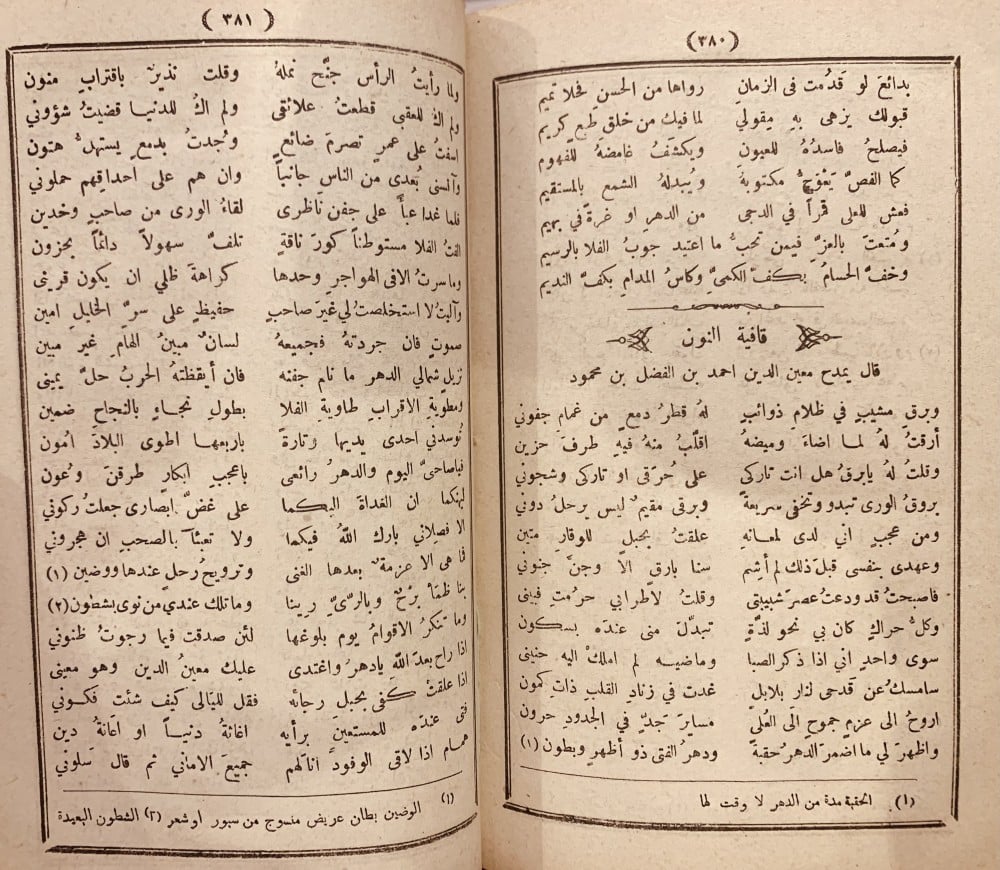 (٣٨٠)
بدائعَ لو قدُمت فى الزمانِ رواها من الحسنِ فحلا تميم
قبولك يزهى بهِ مِقولي لما فيك من خلق طبع كريم
فيصلحُ فاسدُهُ للعيون ويكشفُ غامضهُ للفهوم
كما الفصّ يَعْوَجُّ مكتوبهُ ويُبدلهُ الشمع بالمستقيم
فعش للعلى قمراً في الدجى من الدهرِ او غرةً في بهيم
ومُتعتَ بالعزِّ فيمن تحبُّ ما اعتيد جوبُ الفلا بالرسيم
وخفَّ الحسامُ بكفِّ الكميِّ وكاسُ المدامِ بكفِّ النديم
قافية النون
قال يمدح معين الدين احمد بن الفضل بن محمود
وبرقِ مشيبٍ في ظلامِ ذوائبٍ لهُ قطرُ دمعٍ من غمامِ جفوني
أرقتُ لهُ لما اضاءَ وميضهُ اقلّبُ منهُ فيهِ طرفَ حزين
وقلتُ لهُ يابرقُ هل انت تاركى على حُرَقى او تاركى وشجونى
يروقُ الورى تبدو وتخفى سريعةً وبرقى مقيمٌ ليس يرحلُ دونى
ومن عجبٍ أني لدى لمعانهِ علقتُ بحبلٍ للوقارِ متين
وعهدى بنفسى قبلَ ذلك لم أشِم سنا بارقٍ الّا وجنَّ جنونى
فاصبحتُ قد ودعتُ عصرَ شبيبتى وقلتُ لاطرابي حرُمتِ فبينى
وكلُّ حراكٍ كان بي نحو لذةٍ تبدلَ منى عندَه بسكون
سوى واحدٍ اني اذا ذكر الصبا وماضيه لم املك اليه حنينى
سامسكُ عن قدحى لنارِ بلابلٍ غدت في زنادِ القلبِ ذاتَ كمون
اروحُ الى عزمٍ جموحٍ الى العُلى مسايرَ جدٍّ في الجدودِ حرون
واظهرَ لي ما اضمرَ الدهرُ حقبةً ودهرُ الفتى ذو أظهرٍ وبطون (١)
(١) الحقبة مدة من الدهر لا وقت لها
(٣٨١)
ولما رأيتُ الرأس جنَّح نملهُ وقلت نذيرٌ باقترابِ منون
ولم اكُ للعقبى قطعتُ علائقى ولم اكُ للدنيا قضيتُ شؤوني
اسفتُ على عمرٍ تصرمَ ضائعٍ وجُدتُ بدمعٍ يستهلُّ هتون
وآنسنى بُعدى من الناسِ جانباً وان هم على احداقهم حملوني
فلما غدا عبأً على جفنِ ناظرى لقاءُ الورى من صاحبٍ وخدين
الفتُ الفلا مستوطناً كورَ ناقةٍ تلفّ سهولاً دائماً بحزون
وما سرتُ الا فى الهواجرِ وحدها كراهةَ ظلي ان يكون قرينى
وآليتُ لا استخلصتُ لي غيرَ صاحبٍ حفيظٍ على سرِّ الخليلِ امين
صموتٍ فان جردتهُ فجميعهُ لسانٌ مبينُ الهامِ غير مبين
نزيل شمالي الدهر ما نام جفنه فان أيقظتهُ الحربُ حلَّ يمينى
ومطويةِ الاقرابِ طاويةِ الفلا بطولِ نجاءٍ بالنجاحِ ضمين
تُوسدني احدى يديها وتارةً باربعها اطوى البلادَ امون
فياصاحىَّ اليوم والدهرُ رائعى باعجبِ ابكارٍ طرقنَ وعُون
ليهنكما ان الغداةَ اليكما على غضّ ابصارى جعلتُ ركونى
الا فصلاني بارك اللهُ فيكما ولا تعبئا بالصحبِ ان هجرونى
فما هى الا عزمةٌ بعدها الغنى وترويحُ رحلٍ عندها ووضين (١)
بنا ظمأٌ برْحٌ وبالرّيّ رِيّنا وما تلك عندي من نوى بشطون (٢)
وما تنكرُ الاقوامُ يوم بلوغها لئن صدقت فيما رجوتُ ظنونى
اذا راح بعدَ اللهِ يادهرُ واغتدى عليك معينُ الدين وهو معينى
اذا علقتُ كفى بحبلِ رجائه فقل لليالى كيف شئت فكونى
فتى عندَه للمستعينِ برأيه اغاثةُ دنيا او اعانةُ دين
همام اذا لاقى الوفودَ أنالهم جميعَ الامانى ثم قال سَلونى
(١) الوضين بطان عريض منسوج من سيور او شعر (٢) الشطون البعيدة